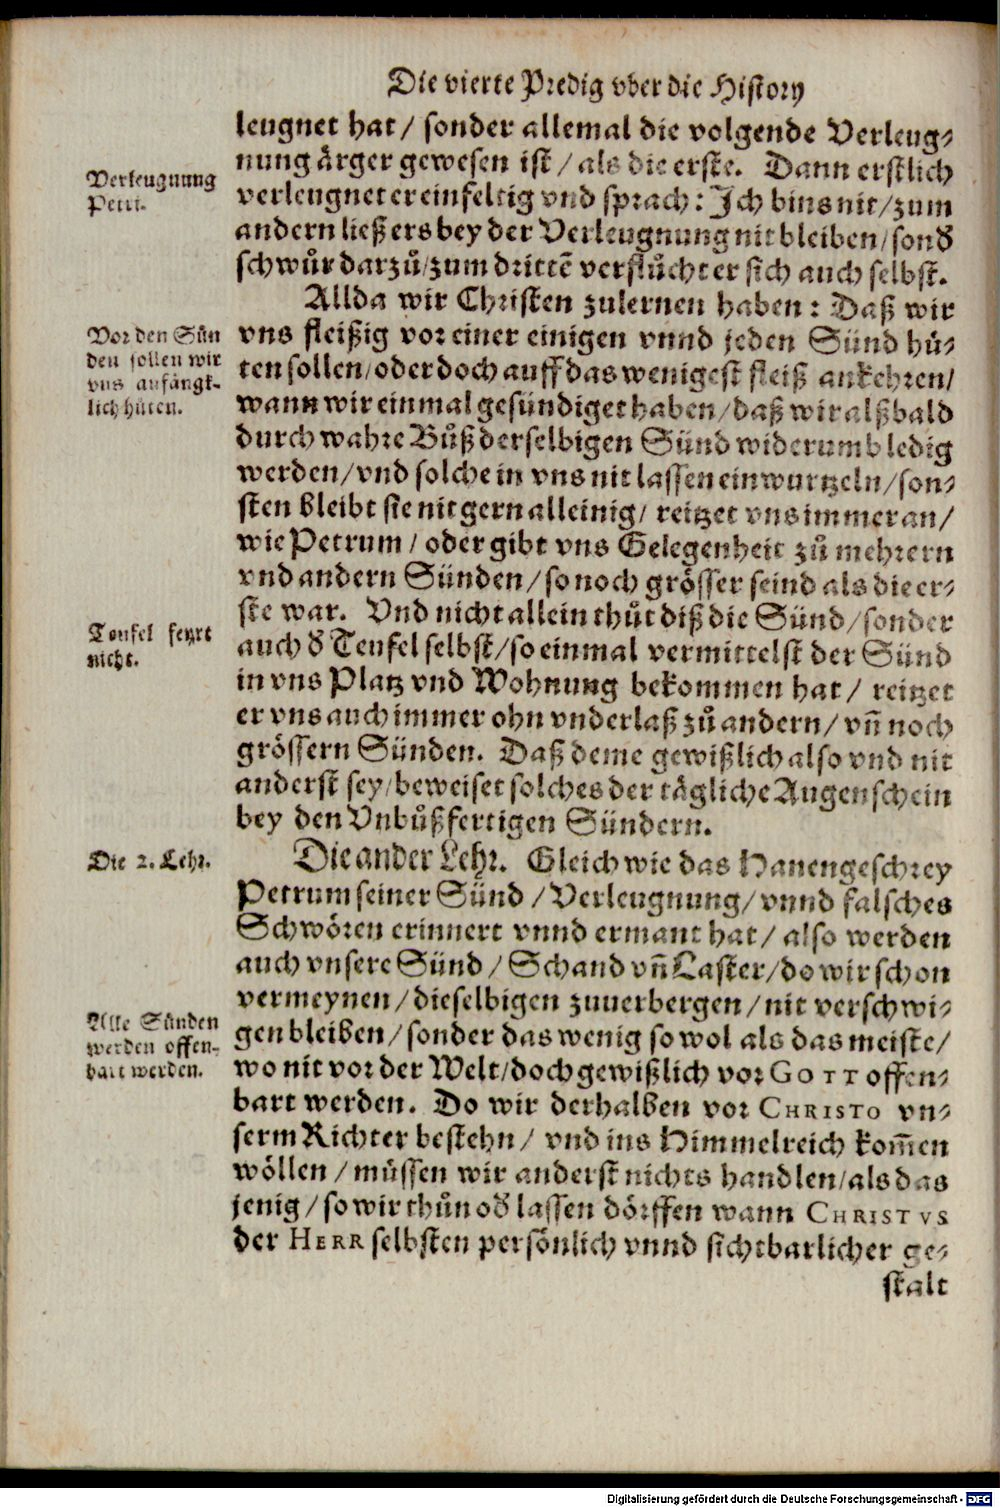 Die vierte Predig vber die History
leugnet hat / sonder allemal die volgende Verleug-
nung ärger gewesen ist / als die erste. Dann erstlich
verleugnet er einfeltig vnd sprach: Ich bins nit / zum
andern ließ ers bey der Verleugnung nit bleiben / sond̕
schwůr darzů / zum drittẽ verflůcht er sich auch selbst.
Verleugnung
Petri.
Allda wir Christen zulernen haben: Daß wir
vns fleißig vor einer einigen vnnd jeden Sünd hů-
ten sollen / oder doch auff das wenigest fleiß ankehren /
wann wir einmal gesündiget haben / daß wir alßbald
durch wahre Bůß derselbigen Sünd widerumb ledig
werden / vnd solche in vns nit lassen einwurtzeln / son-
sten bleibt sie nit gern alleinig / reitzet vns immer an /
wie Petrum / oder gibt vns Gelegenheit zů mehrern
vnd andern Sünden / so noch grösser seind als die er-
ste war. Vnd nicht allein thůt diß die Sünd / sonder
auch d̕ Teufel selbst / so einmal vermittelst der Sünd
in vns Platz vnd Wohnung bekommen hat / reitzet
er vns auch immer ohn vnderlaß zů andern / vñ noch
grössern Sünden. Daß deme gewißlich also vnd nit
anderst sey / beweiset solches der tägliche Augenschein
bey den Vnbůßfertigen Sündern.
Vor den Sün
den sollen wir
vns anfängk-
lich hüten.
Teufel feyrt
nicht.
Die ander Lehr. Gleich wie das Hanengeschrey
Petrum seiner Sünd / Verleugnung / vnnd falsches
Schwören erinnert vnnd ermant hat / also werden
auch vnsere Sünd / Schand vñ Laster / do wir schon
vermeynen / dieselbigen zuuerbergen / nit verschwi-
gen bleiben / sonder das wenig so wol als das meiste /
wo nit vor der Welt / doch gewißlich vor GOTT offen-
bart werden. Do wir derhalben vor CHRISTO vn-
serm Richter bestehn / vnd ins Himmelreich kom̃en
wöllen / müssen wir anderst nichts handlen / als das
jenig / so wir thůn od̕ lassen dörffen wann CHRISTVS
der HERR selbsten persönlich vnnd sichtbarlicher ge-
stalt
Die 2. Lehr.
Alle Sünden
werden offen-
bart werden.
Digitalisierung gefördert durch die Deutsche Forschungsgemeinschaft - DFG